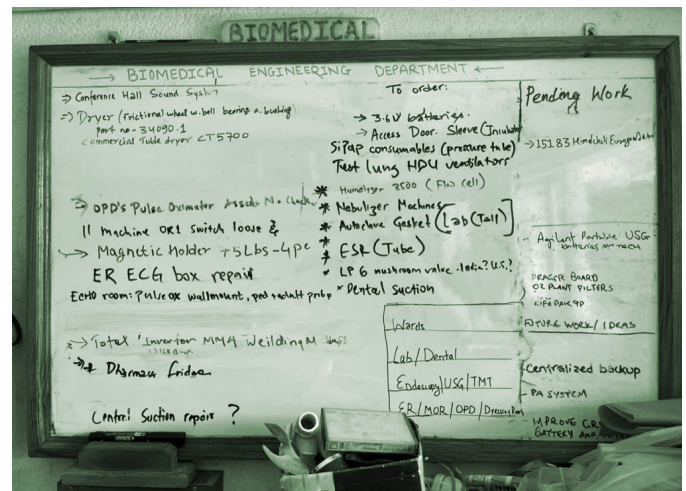 BIOMEDICAL
→ BIOMEDICAL ENGINEERING DEPARTMENT ←
⇒ Conference Hall Sound System
⇒ Dryer (Frictional wheel w. ball bearing a. bushing)
Part no - 34090.1
Commercial Tube dryer CT5700
⇒ OPD's Pulse Oximator Assets N. Check
11 machine OR1 switch loose &
→ Magnetic Holder +5Lbs-4pc
ER ECG box repair
Echo room: Pulse ox wallmount, ped + adult prob
⇒ Total Invertor MMA Weilding M
Fridge
Central Suction repair ?
To order:
→ 3.6V batteries.
→ Access Door. Sleeve (Incubat
Sipap consumables (pressure tube)
Test lung HDU ventilators
* Humelizer 3500 (Flow cell)
* Nebulizer Machines
* Autoclave Gasket (Lab (Tall)
* ESR (Tube)
* LP 6 mushroom valve - India? U.S.?
* Dental suction
Wards
Lab/Dental
Endoscopy/USG/TMT
ER/MOR/OPD/Dressing Room
Pending Work
→ 15183
Agilent Portable USG
batteries
DRAGER BOARD
O2 PLANT FILTERS
LIFEPAK 9P
FUTURE WORK/IDEAS
Centralized backup
PA SYSTEM
IMPROVE
BATTERY